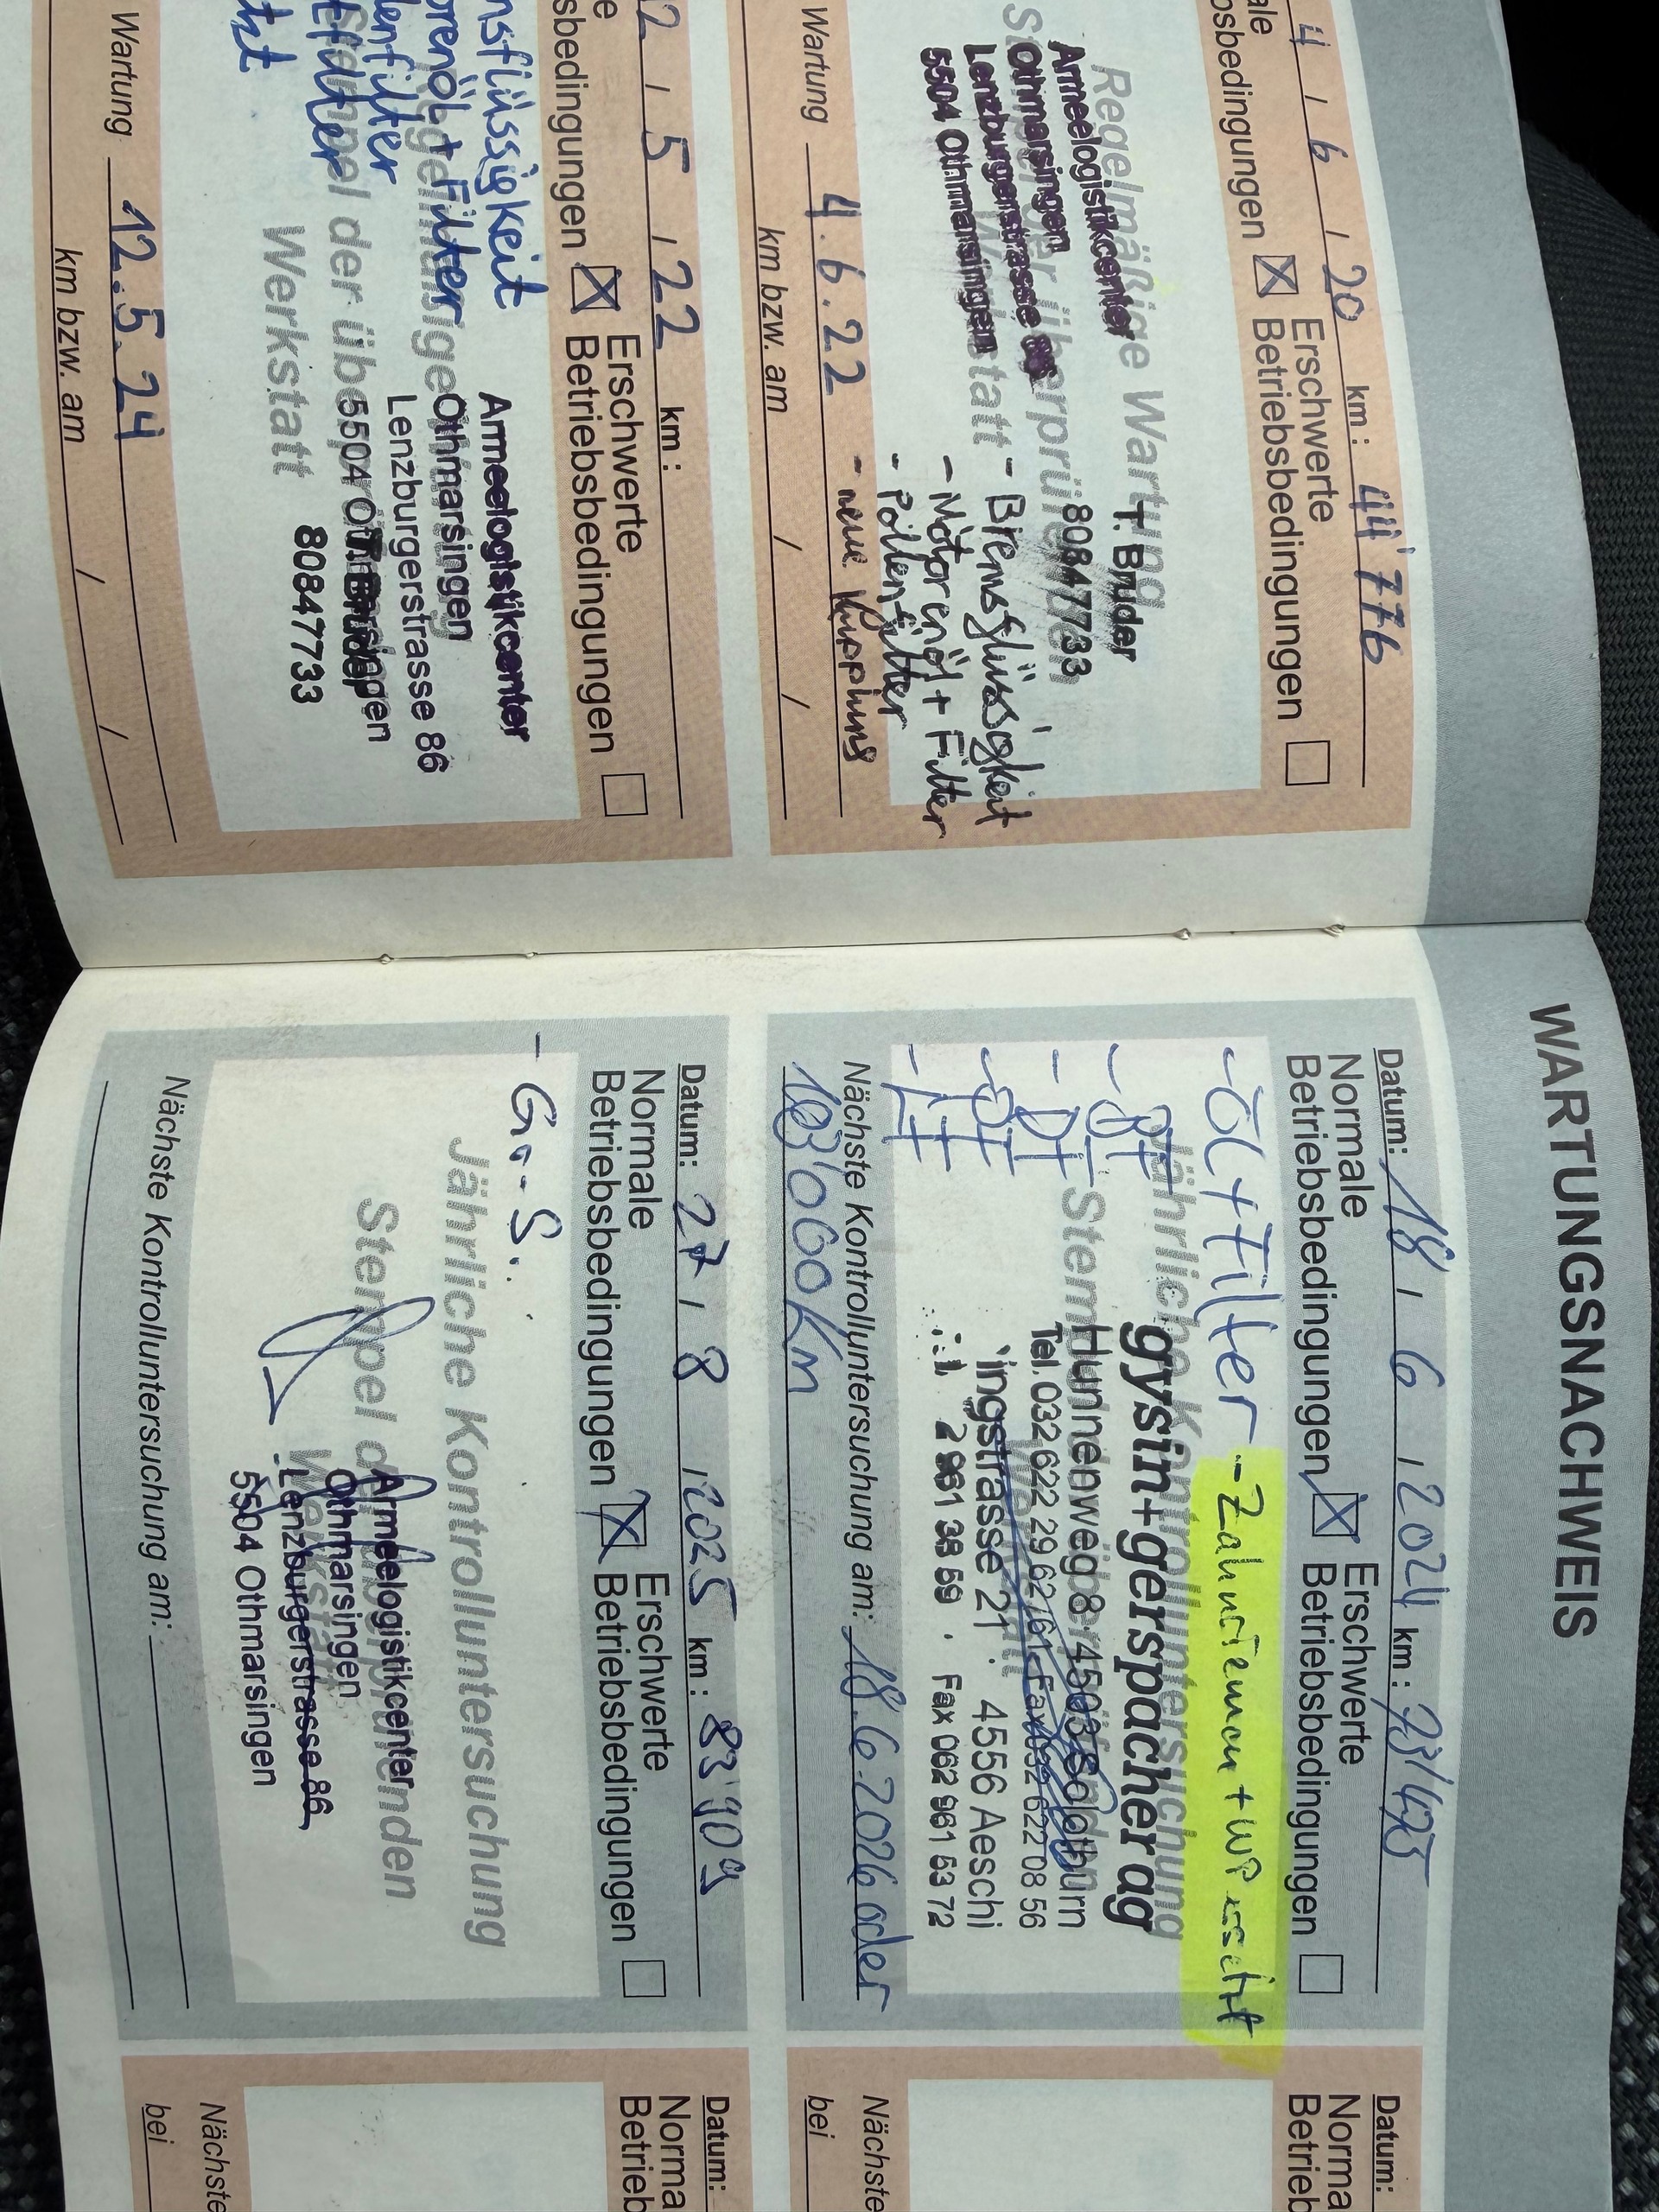 WARTUNGSNACHWEIS
4 / 6 / 20 km: 44'776
ale
sbedingungen ☒ Erschwerte
Betriebsbedingungen ☐
Regelmäßige Wartung
Armeelogistikcenter
Othmarsingen
Lenzburgerstrasse 86
5504 Othmarsingen
T. Bruder
80847733
- Bremsflüssigkeit
- Motorenöl + Filter
- Pollenfilter
- neue Kupplung
Wartung 4.6.22
km bzw. am / /
2 / 5 / 22 km:
e
sbedingungen ☒ Erschwerte
Betriebsbedingungen ☐
nsflüssigkeit
orenöl + Filter
lenfilter
tzt
Stempel der
Werkstatt
Armeelogistikcenter
Othmarsingen
Lenzburgerstrasse 86
5504 Othmarsingen
T. Bruder
80847733
Wartung 12.5.24
km bzw. am / /
Datum: 18 / 6 / 2024 km: 73'495
Normale
Betriebsbedingungen ☒ Erschwerte
Betriebsbedingungen ☐
- Öl + Filter - Zahnriemen + WP ersetzt
- BF
- DF
- PF
- LF
Jährliche Kontrolluntersuchung
gysin+gerspacher ag
Tel. 032 622 29 62/61 - Fax 032 622 08 56
ingstrasse 21 · 4556 Aeschi
Fax 062 961 53 72
Nächste Kontrolluntersuchung am: 18.6.2026 oder
103'000 km
Datum: 27 / 8 / 2025 km: 83'109
Normale
Betriebsbedingungen ☒ Erschwerte
Betriebsbedingungen ☐
- G.-S.
Jährliche Kontrolluntersuchung
Stempel der überprüfenden
Werkstatt
Armeelogistikcenter
Othmarsingen
Lenzburgerstrasse 86
5504 Othmarsingen
Nächste Kontrolluntersuchung am:
Datum:
Norma
Betrieb
Nächste
bei
Datum:
Norma
Betrieb
Nächste
bei